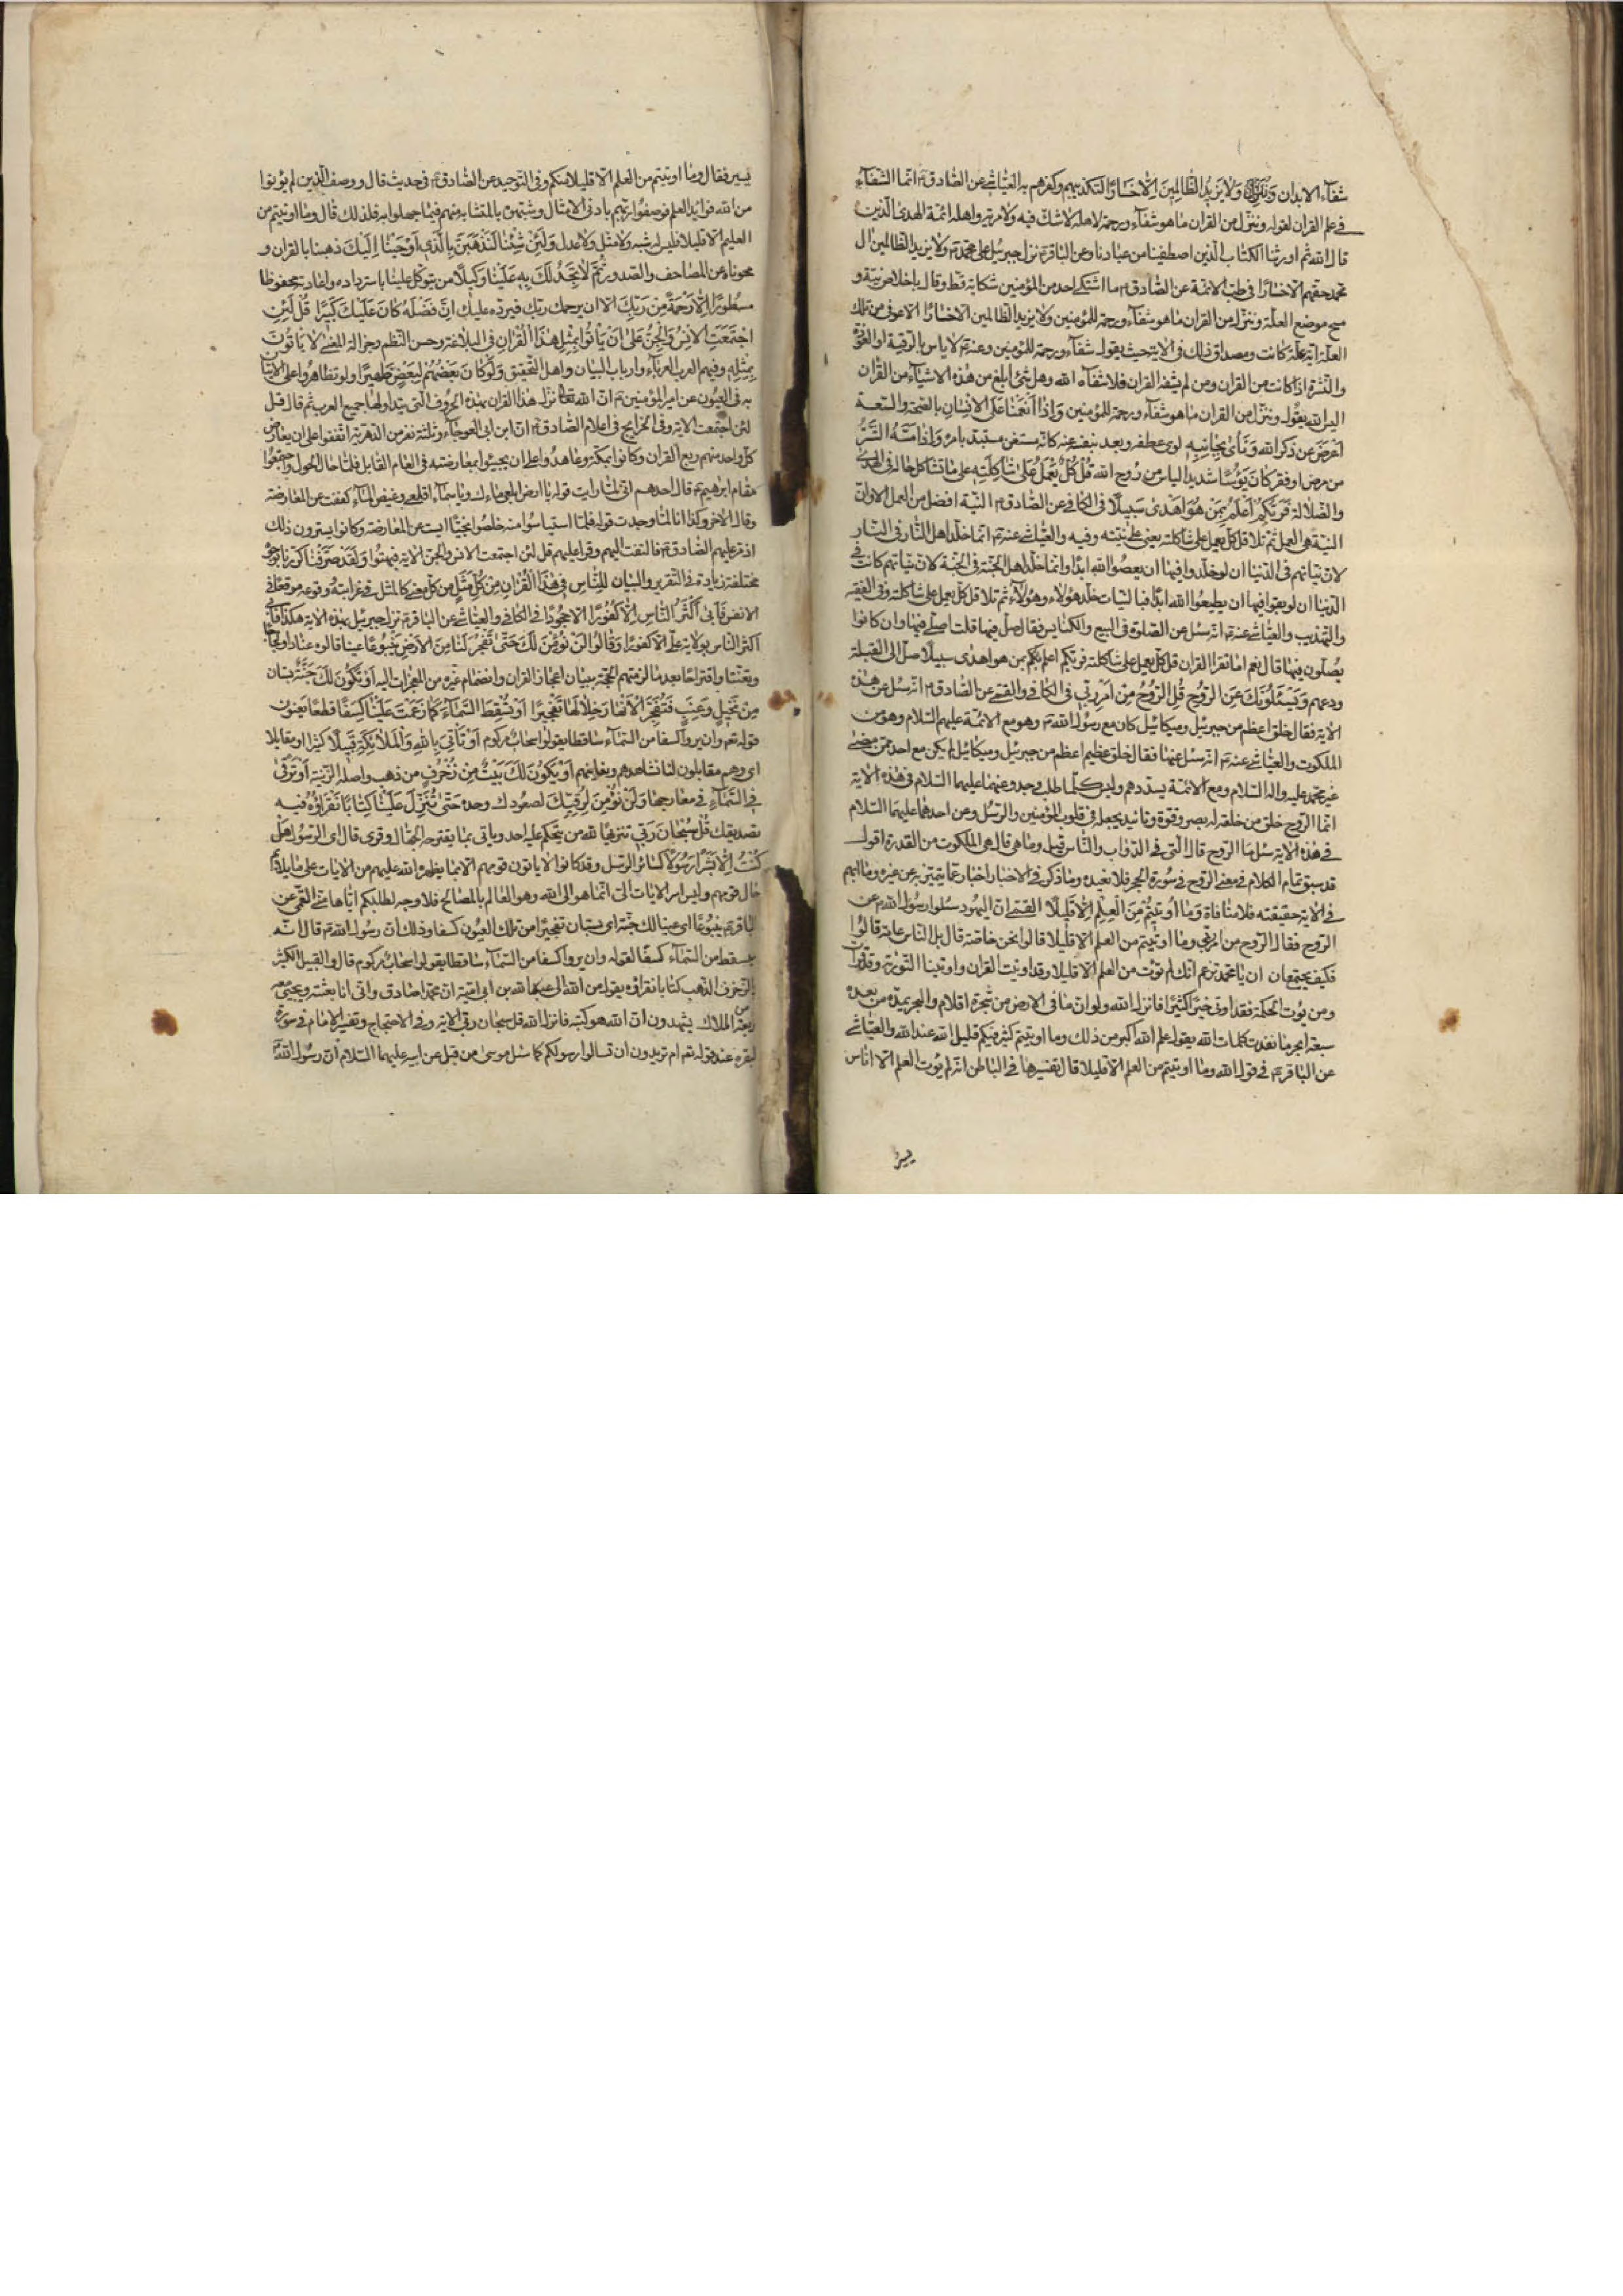 شفآء الابدان ولا يَزيدُ الظّالِمينَ اِلّا خَسَارًا لتكذيبهم وكفرهم به العيّاشى عن الصّادق ع انّما الشّفآء
فى علم القران لقوله وننزّل من القران ما هو شفآء ورحمة لاهله لا شكّ فيه ولا مرية واهله ائمّة الهدى الّذين
قال الله ثم اورثنا الكتاب الّذين اصطفينا من عبادنا وعن الباقر ع نزل جبرئيل على محمّد ص ولا يزيد الظالمين ال
محمّد حقهم الا خسارًا فى طبّ الائمّة عن الصّادق ع ما اشتكى احد من المؤمنين شكاية قطّ وقال باخلاص نيّة و
مسح موضع العلّة وننزّل من القران ما هو شفآء ورحمة للمؤمنين ولا يزيد الظالمين الا خسارًا الا عوفى من تلك
العلّة ايّة علّة كانت ومصداق ذلك فى الاية حيث يقول شفآء ورحمة للمؤمنين وعنه ع لا باس بالرقية والعوذة
والنّشرة اذا كانت من القران ومن لم يشفه القران فلا شفآه الله وهل شئ ابلغ من هذه الاشيآء من القران
اليس الله يقول وننزّل من القران ما هو شفآء ورحمة للمؤمنين وَاِذَا اَنْعَمْنَا عَلَى الاِنْسَانِ بالصّحة والسّعة
اَعْرَضَ عن ذكر الله وَنَاٰى بِجَانِبِه لوى عطفه وبعد بنفسه عنه كانّه مستغن مستبد بامره وَاِذَا مَسَّهُ الشَّرُّ
من مرض او فقر كَانَ يَؤُسًا شديد الياس من رَوح الله قُلْ كُلٌّ يَعْمَلُ عَلٰى شَاكِلَتِه على ما تشاكل حاله فى الهدى
والضّلالة فَرَبُّكُمْ اَعْلَمُ بِمَنْ هُوَ اَهْدٰى سَبيلًا فى الكافى عن الصّادق ع النيّة افضل من العمل الا وان
النيّة هى العمل ثم تلا قل كلّ يعمل على شاكلته يعنى على نيّته وفيه والعيّاشى عنه ع انّما خلّد اهل النّار فى النّار
لان نيّاتهم فى الدّنيا ان لو خلّدوا فيها ان يعصوا الله ابدًا وانّما خلّد اهل الجنّة فى الجنّة لان نيّاتهم كانت فى
الدّنيا ان لو بقوا فيها ان يطيعوا الله ابدًا فبالنيّات خلّد هؤلاء وهؤلآء ثم تلا قل كلّ يعمل على شاكلته وفى الفقيه
والتّهذيب والعيّاشى عنه ع انّه سئل عن الصّلوة فى البيع والكنايس فقال صلّ فيها قلت اصلّى فيها وان كانوا
يصلّون فيها قال نعم اما تقرا القران قل كلّ يعمل على شاكلته فربّكم اعلم بمن هو اهدى سبيلًا صلّ الى القبلة
ودعهم وَيَسْئَلُونَكَ عَنِ الرُّوحِ قُلِ الرُّوحُ مِنْ اَمْرِ رَبّى فى الكافى والقمّى عن الصّادق ع انّه سئل عن هذه
الاية فقال خلق اعظم من جبرئيل وميكائيل كان مع رسول الله ص وهو مع الائمّة عليهم السّلام وهو من
الملكوت والعيّاشى عنه ع انّه سئل عنها فقال خلق عظيم اعظم من جبرئيل وميكائيل لم يكن مع احد ممّن مضى
غير محمّد عليه واله السّلام ومع الائمّة يسدّدهم وليس كلّما طلب وجد وعنهما عليهما السّلام فى هذه الاية
انّما الرّوح خلق من خلقه له بصر وقوّة وتائيد يجعله فى قلوب المؤمنين والرّسل وعن احدهما عليهما السّلام
فى هذه الاية سئل ما الرّوح قال الّتى فى الدّوابّ والنّاس قيل وما هى قال هى الملكوت من القدرة اقول
قد سبق تمام الكلام فى معنى الرّوح فى سورة الحجر فلا نعيده وما ذكر فى الاخبار اخبار عمّا يتميّز به عن غيره وما ابهم
فى الاية حقيقته فلا منافاة وَمَا اُوتيتُمْ مِنَ الْعِلْمِ اِلّا قَليلًا القمّى انّ اليهود سئلوا رسول الله ص عن
الرّوح فقال الرّوح من امر ربّى وما اوتيتم من العلم الا قليلا قالوا نحن خاصّة قال بل النّاس عامّة قالوا
فكيف يجتمعان ان يا محمّد تزعم انّك لم تؤت من العلم الا قليلا وقد اوتيت القران واوتينا التّورية وقد قرات
ومن يؤت الحكمة فقد اوتى خيرًا كثيرًا فانزل الله ولو انّ ما فى الارض من شجرة اقلام والبحر يمدّه من بعده
سبعة ابحر ما نفدت كلمات الله يقول علم الله اكبر من ذلك وما اوتيتم كثير فيكم قليل عند الله والعيّاشى
عن الباقر ع فى قول الله وما اوتيتم من العلم الا قليلا قال تفسيرها فى الباطن انّه لم يؤت العلم الا اناس
يسير
يسير فقال وما اوتيتم من العلم الا قليلا منكم وفى التوحيد عن الصّادق ع فى حديث قال ووصف الّذين لم يؤتوا
من الله فوايد العلم فوصفوا ربّهم بادنى الامثال وشبّهوه بالمتشابه منهم فيما جهلوا به فلذلك قال وما اوتيتم من
العلم الا قليلا فليس له شبه ولا مثل ولا عدل وَلَئِنْ شِئْنَا لَنَذْهَبَنَّ بِالَّذى اَوْحَيْنَا اِلَيْكَ ذهبنا بالقران و
محوناه عن المصاحف والصّدور ثُمَّ لَا تَجِدُ لَكَ بِه عَلَيْنَا وَكيلًا من يتوكّل علينا باسترداده واعادته محفوظا
مسطورًا اِلّا رَحْمَةً مِنْ رَبِّكَ الا ان يرحمك ربّك فيردّه عليك اِنَّ فَضْلَهُ كَانَ عَلَيْكَ كَبيرًا قُلْ لَئِنِ
اجْتَمَعَتِ الْاِنْسُ وَالْجِنُّ عَلٰى اَنْ يَاْتُوا بِمِثْلِ هٰذَا الْقُرْاٰنِ فى البلاغة وحسن النّظم وجزالة المعنى لَا يَاْتُونَ
بِمِثْلِه وفيهم العرب العرباء وارباب البيان واهل التّحقيق وَلَوْ كَانَ بَعْضُهُمْ لِبَعْضٍ ظَهيرًا ولو تظاهروا على الاتيان
به فى العيون عن امير المؤمنين ع انّ الله تعالى نزّل هذا القران بهذه الحروف الّتى يتداولها جميع العرب ثم قال قل
لئن اجتمعت الاية وفى الخرايج فى اعلام الصّادق ع انّ ابن ابى العوجآء وثلثة نفر من الدّهريّة اتّفقوا على ان يعارض
كلّ واحد منهم ربع القران وكانوا بمكّة وعاهدوا على ان يجيئوا بمعارضته فى العام القابل فلمّا حال الحول واجتمعوا
مقام ابرهيم ع قال احدهم انّى لمّا رايت قوله يا ارض ابلعى مآءك ويا سمآء اقلعى وغيض المآء كففت عن المعارضة
وقال الاخر وكذا انا لمّا وجدت قوله فلمّا استياسوا منه خلصوا نجيّا ايست عن المعارضة وكانوا يسترون ذلك
اذ مرّ عليهم الصّادق ع فالتفت اليهم وقرا عليهم قل لئن اجتمعت الانس والجنّ الاية فبهتوا وَلَقَدْ صَرَّفْنَا كرّرنا بوجوه
مختلفة زيادة فى التقرير والبيان لِلنَّاسِ فى هٰذَا الْقُرْاٰنِ مِنْ كُلِّ مَثَلٍ من كلّ معنى كالمثل فى غرابته ووقوعه موقعًا فى
الانفس فَاَبٰى اَكْثَرُ النَّاسِ اِلّا كُفُورًا الا جحودًا فى الكافى والعيّاشى عن الباقر ع نزل جبرئيل بهذه الاية هكذا فابى
اكثر النّاس بولاية علىّ الا كفورًا وَقَالُوا لَنْ نُؤْمِنَ لَكَ حَتّٰى تَفْجُرَ لَنَا مِنَ الْاَرْضِ يَنْبُوعًا عينا قالوه عنادًا ولجاجًا
وتعنّتا واقتراحًا بعد ما لزمتهم الحجّة ببيان اعجاز القران وانضمام غيره من المعجزات اليه اَوْ تَكُونَ لَكَ جَنَّةٌ بستان
مِنْ نَخيلٍ وَعِنَبٍ فَتُفَجِّرَ الْاَنْهَارَ خِلَالَهَا تَفْجيرًا اَوْ تُسْقِطَ السَّمَآءَ كَمَا زَعَمْتَ عَلَيْنَا كِسَفًا قطعًا يعنون
قوله تعم وان يروا كسفا من السّمآء ساقطا يقولوا سحاب مركوم اَوْ تَاْتِىَ بِاللهِ وَالْمَلٰئِكَةِ قَبيلًا كثيرا او مقابلا
اى وهم مقابلون لنا نشاهدهم ونعاينهم اَوْ يَكُونَ لَكَ بَيْتٌ مِنْ زُخْرُفٍ من ذهب واصله الزّينة اَوْ تَرْقٰى
فِى السَّمَآءِ فى معارجها وَلَنْ نُؤْمِنَ لِرُقِيِّكَ لصعودك وحده حَتّٰى تُنَزِّلَ عَلَيْنَا كِتَابًا نَقْرَؤُهُ فيه
تصديقك قُلْ سُبْحَانَ رَبّى تنزيهًا لله من يتحكّم عليه احد وياتى بما يقترحه الجهّال وقرى قال اى الرّسول هَلْ
كُنْتُ اِلّا بَشَرًا رَسُولًا كسائر الرّسل وقد كانوا لا ياتون قومهم الا بما يظهره الله عليهم من الايات على ما يلايم
حال قومهم وليس امر الايات الىّ انّما هو الى الله وهو العالم بالمصالح فلا وجه لطلبكم ايّاها منّى القمّى عن
الباقر ع ينبوعًا اى عينا لك جنّة اى بستان تفجيرًا من تلك العيون كسفا وذلك انّ رسول الله ص قال انّه
يسقط من السّمآء كسفًا لقوله وان يروا كسفا من السّمآء ساقطا يقولوا سحاب مركوم قال والقبيل الكثير
الزّخرف الذّهب كتابا نقرؤه يقول من الله الى عبد الله بن ابى اميّة انّ محمّدًا صادق وانّى انا بعثته ويجيئ معه
اربعة من الملاك يشهدون انّ الله هو كتبه فانزل الله قل سبحان ربّى الاية وفى الاحتجاج وتفسير الامام فى سورة
البقرة عند قوله تعم ام تريدون ان تسالوا رسولكم كما سئل موسى من قبل عن ابيه عليهما السّلام انّ رسول الله ص